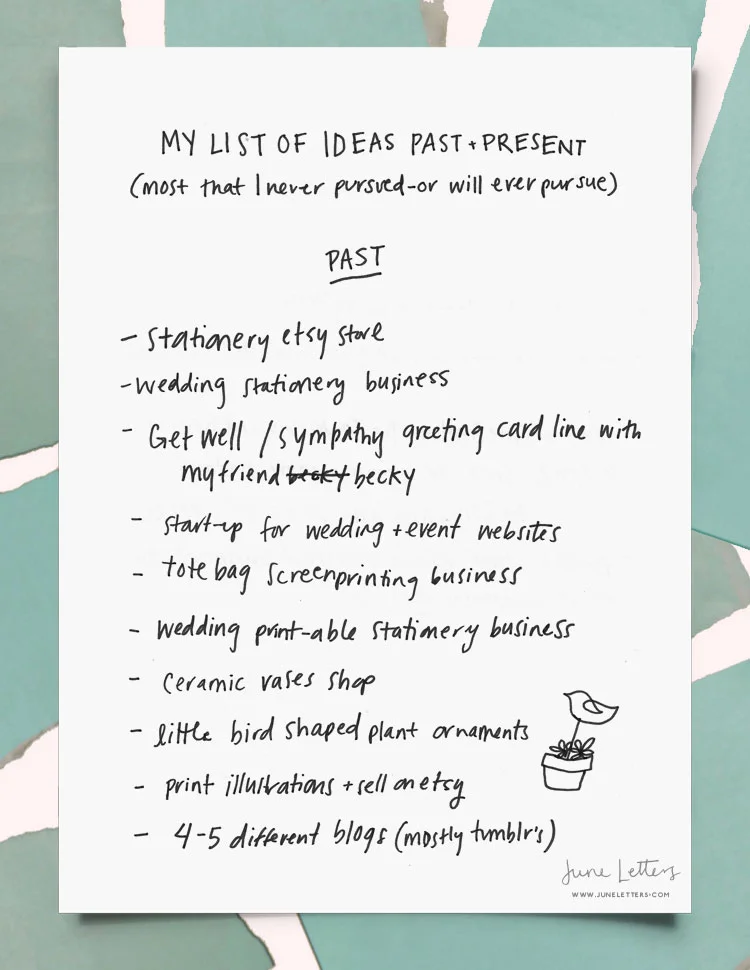 MY LIST OF IDEAS PAST + PRESENT
(most that I never pursued - or will ever pursue)
PAST
- Stationery etsy store
- wedding stationery business
- Get well / sympathy greeting card line with
my friend becky becky
- start-up for wedding + event websites
- tote bag screenprinting business
- wedding print-able stationery business
- ceramic vases shop
- little bird shaped plant ornaments
- print illustrations + sell on etsy
- 4-5 different blogs (mostly tumblr's)
June Letters
WWW.JUNELETTERS.COM